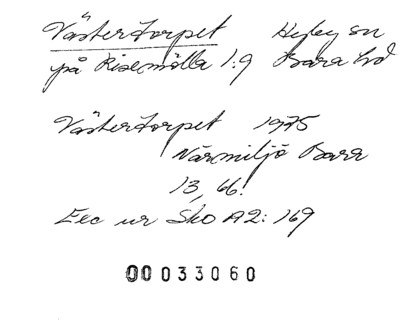 Västertorpet Hyby sn
på Risemölla 1:9 Bara hd
Västertorpet 1975
Närmiljö Bara
13, 66.
Exc ur Sko A2: 169
00033060